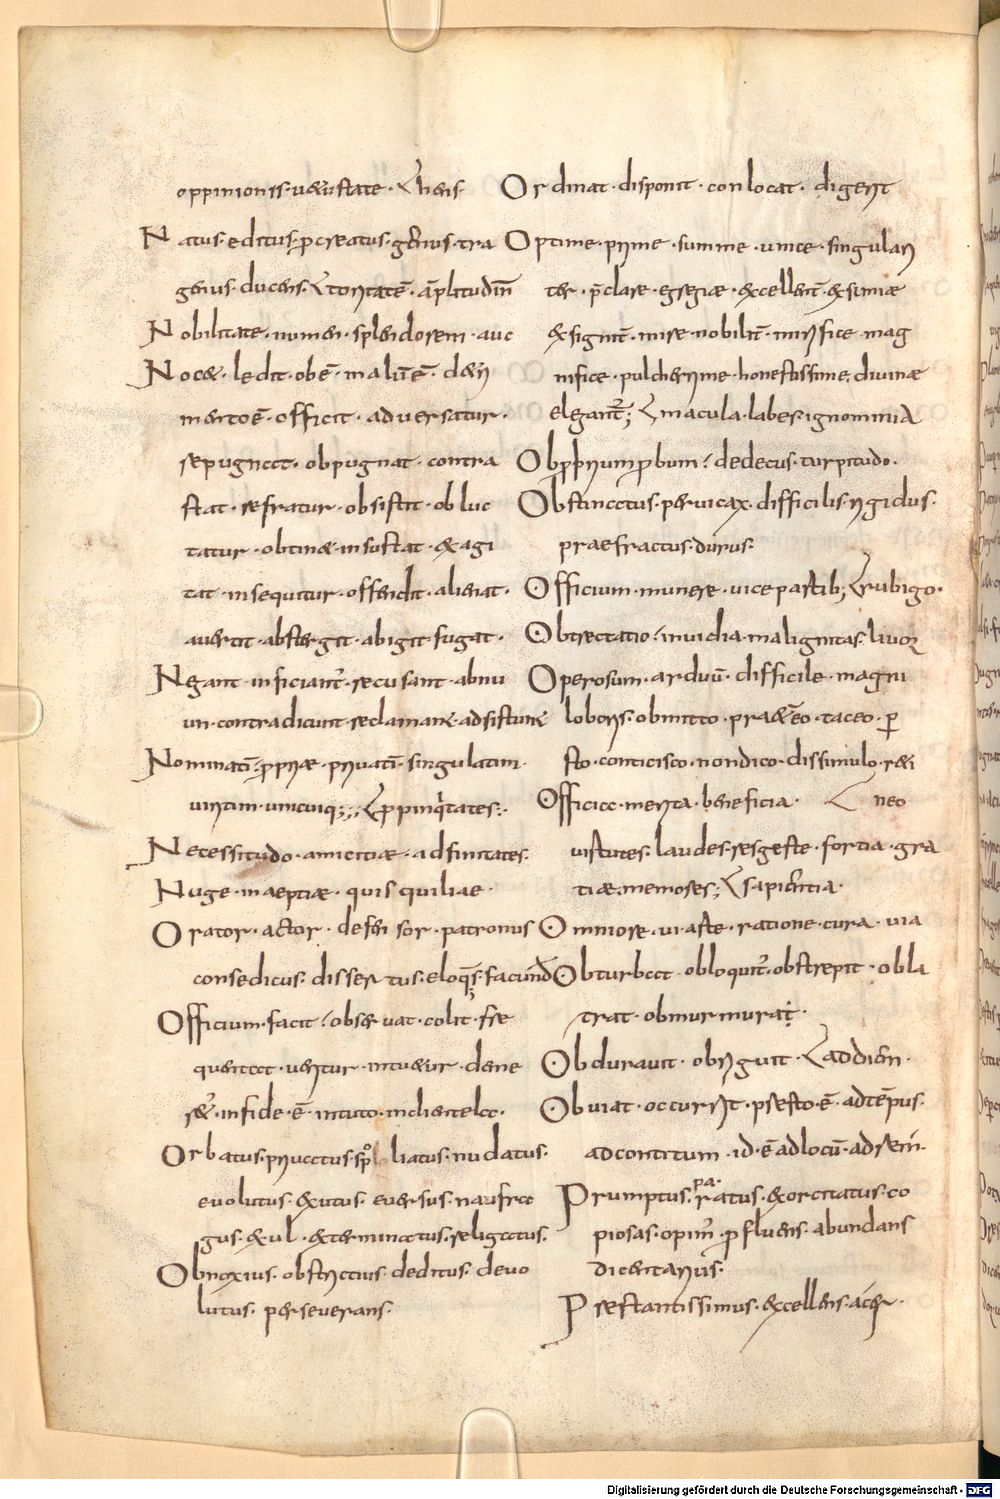 oppinionis · uetustate · gentis
Natus · editus · procreatus · genitus · tra
genus · ducens ·
Nobilitate · nomen · splendorem · auc
Nocet · ledit · obest · in malum est · detri
mento est · officit · adversatur ·
repugnat · obpugnat · contra
stat · refratur · obsistit · obluc
tatur · obtinet · insultat · exagi
tat · insequitur · offendit · alienat ·
auertit · absterget · abigit · fugat ·
Negant · inficiant̃ · recusant · abnu
un · contradicunt · reclamant · adsistunt
Nominatĩ · ꝓpriae · priuatĩ · singulatim ·
uiritim · unicuiq;
Necessitudo · amicitiae · adfinitates ·
Nuge · inaeptiae · quisquiliae ·
Orator · actor · defensor · patronus
consedicus · dissertus · eloqñs · facund
Officium · facit · obseruat · colit · fre
quentat · uentur · intuetur · dene
ret̃ · in fide · ē · in tuto · in clientela ·
Orbatus · priuatus · spoliatus · nudatus ·
euolutus · exutus · euersus · naufra
gus · exul · exterminatus · religatus ·
Obnoxius · obstrictius · deditus · devo
lutus · perseverans ·
Ordinat · disponit · conlocat · digerit
Optime · prime · summe · unice · singulari
ter · p̃clare · egregiae · excellent̃ · exsimiae
exsignit̃ · mire · nobilit̃ · mirifice · mag
nifice · pulcherrime · honestissime · divinae
elegant̃; macula · labes · ignominia
Obprobrium probum · dedecus · turpitudo ·
Obstinatus · pervicax · difficilis · rigidus ·
praefractus · durus ·
Officium · munere · vice partib; rubigo ·
Obtrectatio · invidia · malignitas · livor
Operosum · arduũ · difficile · magni
laboris · obmitto · praetereo · taceo · p
sto · conticisco · non dico · dissimulo · reti
Officia · merita · beneficia · neo
virtutes · laudes · res geste · fortia · gra
tiae · memores; sapientia ·
Ommore · vi · arte · ratione · cura · via
Obturbat · obloquit̃ · obstrepit · obla
trat · obmurmurat ·
Obduravit · obriguit · addien ·
Obviat · occurrit · presto · ē · ad tẽpus ·
ad conditum · id · ē ad locũ · ad rem ·
Prumptus · paratus · exorcitatus · co
piosas · opim̃ · ꝓfluens · abundans
dicentarius ·
Prestantissimus · excellens · acer ·
Digitalisierung gefördert durch die Deutsche Forschungsgemeinschaft - DFG